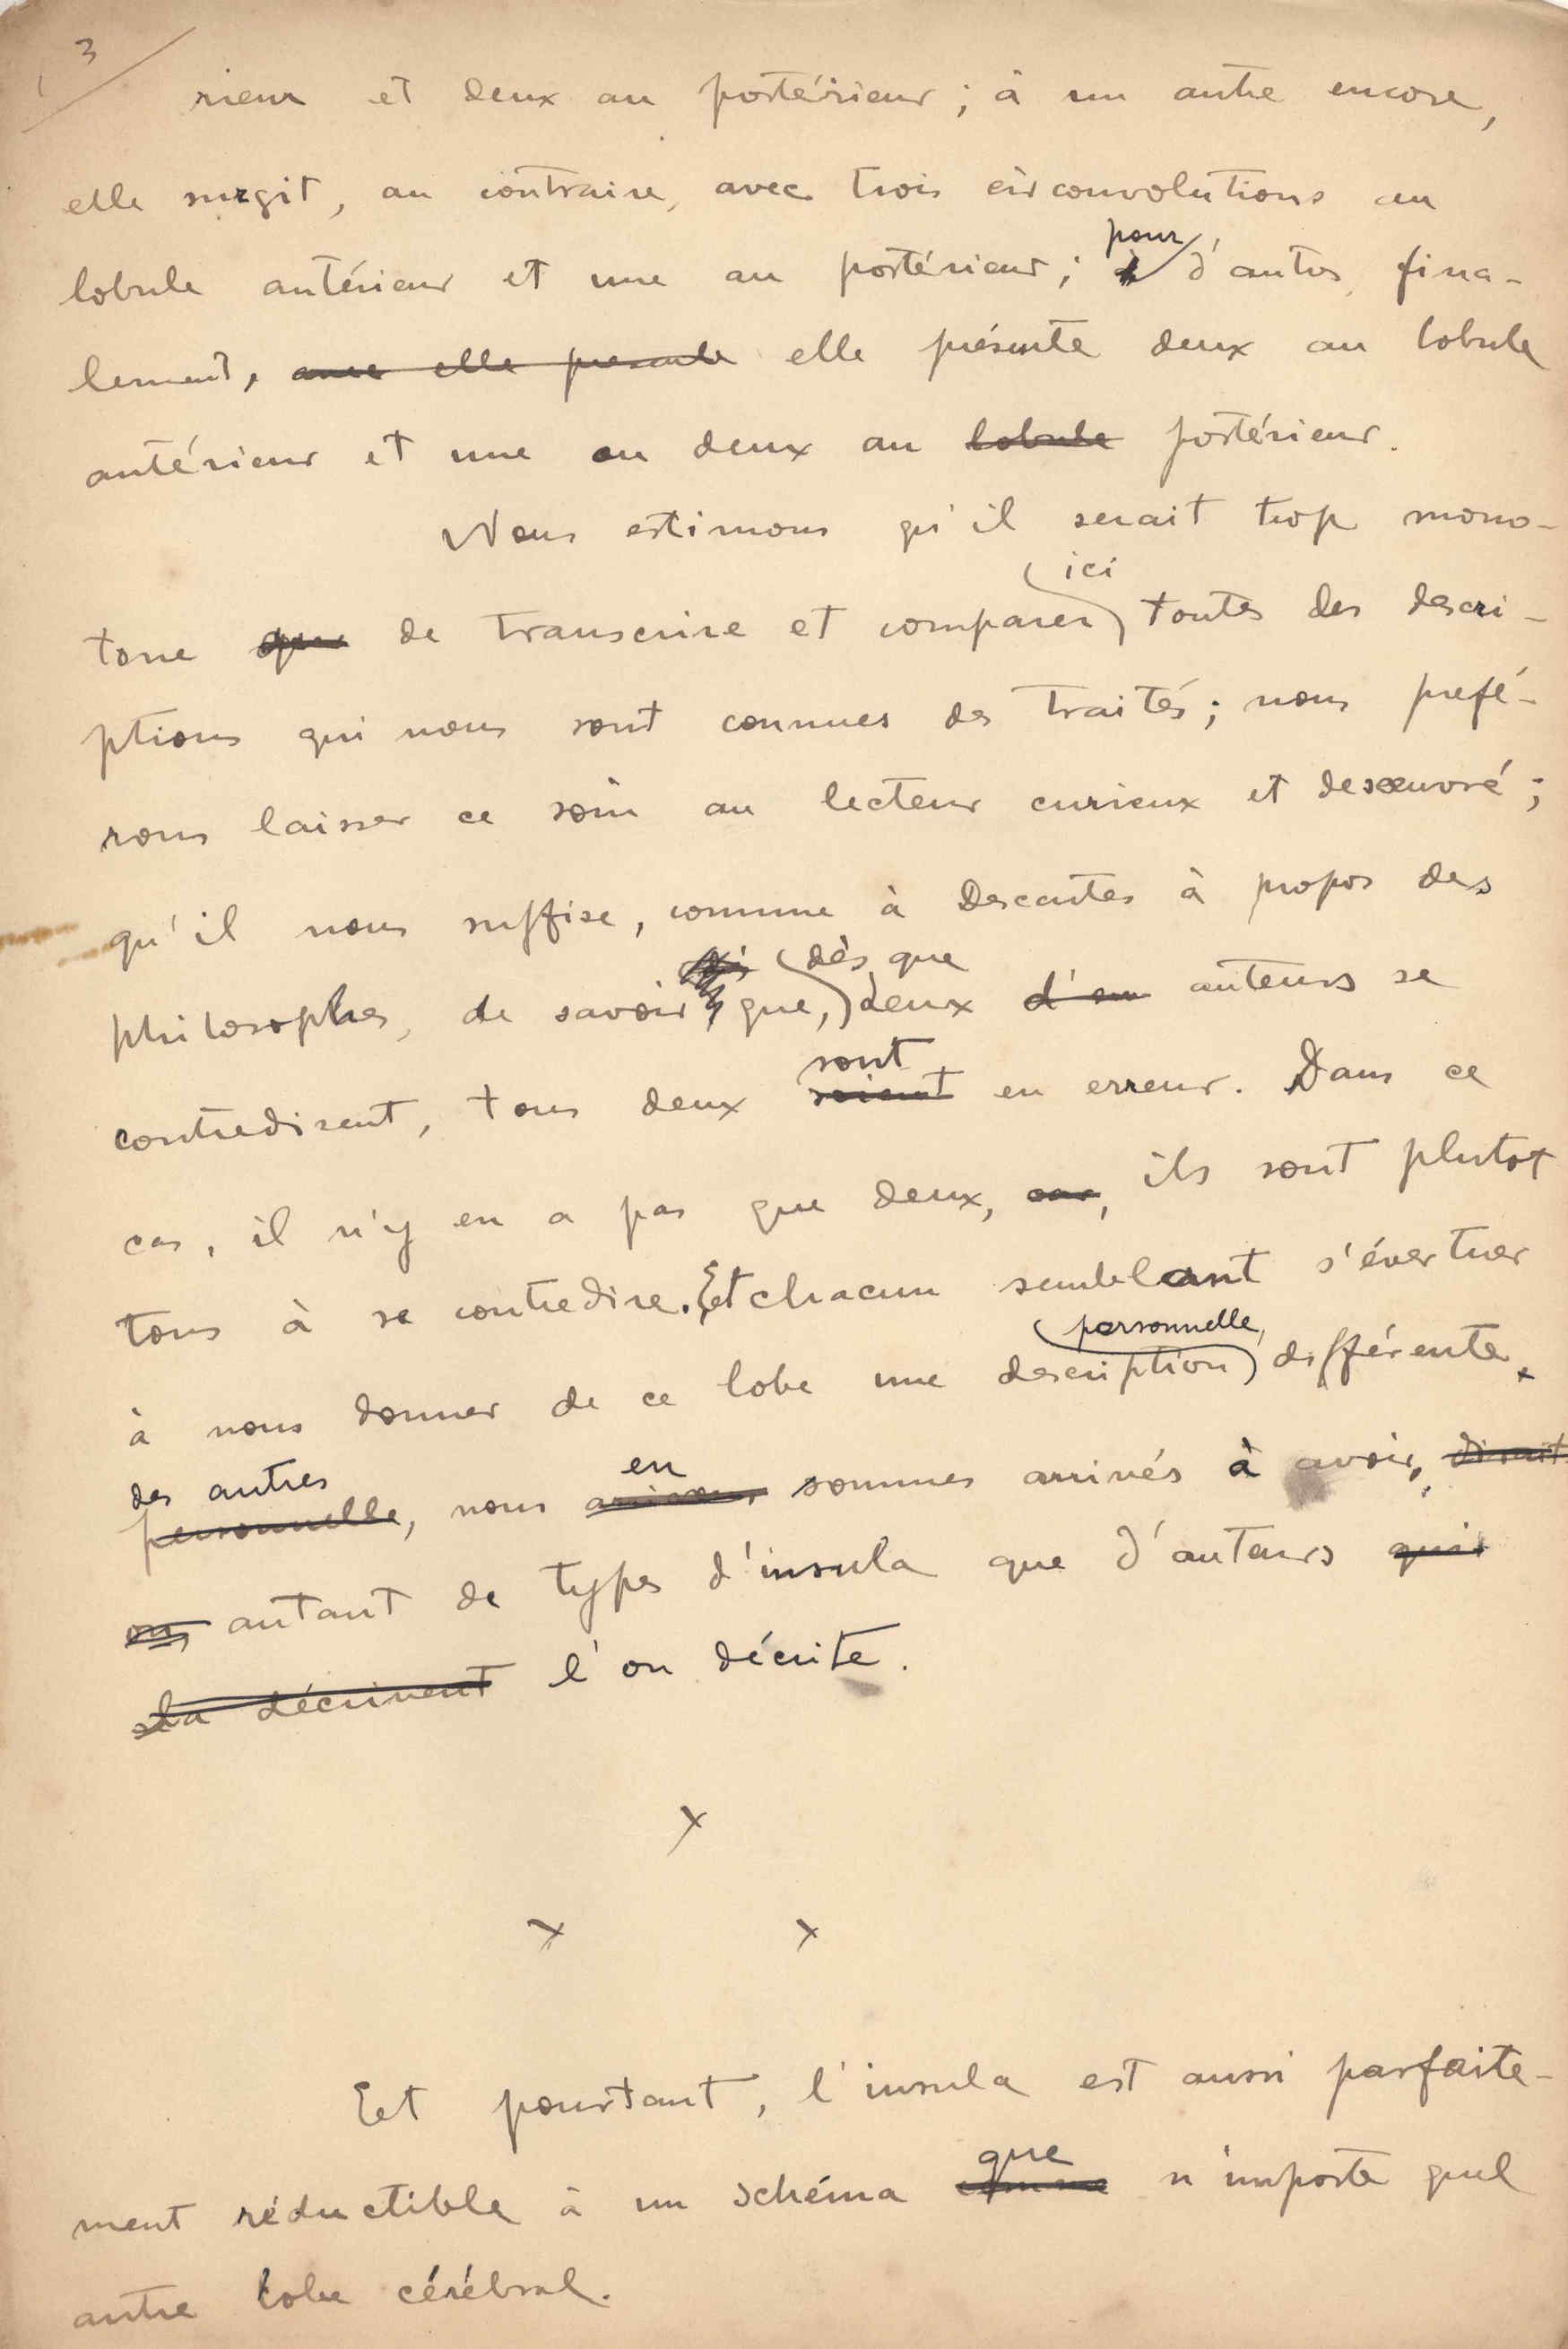 3
rieur et deux au postérieur ; à un autre encore,
elle surgit, au contraire, avec trois circonvolutions au
pour
lobule antérieur et une au postérieur ; à d'autres, fina-
lement, avec elle presente elle présente deux au lobule
antérieur et une ou deux au lobule postérieur.
Nous estimons qu'il serait trop mono-
ici
tone que de transcrire et comparer toutes des descri-
ptions qui nous sont connues des traités ; nous prefé-
rons laisser ce soin au lecteur curieux et desœuvré ;
qu'il nous suffise, comme à Descartes à propos des
dès que
philosophes, de savoir que, deux d'eu auteurs se
sont
contredisent, tous deux soient en erreur. Dans ce
cas, il n'y en a pas que deux, car, ils sont plutot
tous à se contredire. Et chacun semblant s'évertuer
personnelle,
à nous donner de ce lobe une description différente
des autres en
personnelle, nous arrivons sommes arrivés à avoir, disait
on, autant de types d'insula que d'auteurs qui
la décrivent l'on décrite.
x
x x
Et pourtant, l'insula est aussi parfaite-
que
ment réductible à un schéma comme n'importe quel
autre lobe cérébral.